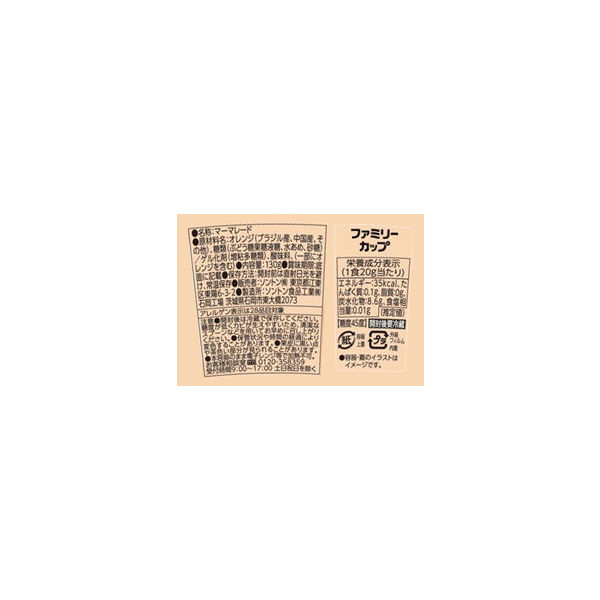 ●名称:マーマレード
●原材料名:オレンジ(ブラジル産、中国産、そ
の他)、糖類(ぶどう糖果糖液糖、水あめ、砂糖)
/ゲル化剤(増粘多糖類)、酸味料、(一部にオ
レンジを含む)●内容量:130g●賞味期限:底
面に記載●保存方法:開封前は直射日光を避
け、常温保存●販売者:ソントン㈱ 東京都江東
区東陽6-3-2●製造所:ソントン食品工業㈱
石岡工場 茨城県石岡市東大橋2073
アレルゲン表示は28品目対象
注意●開封後は冷蔵で保存してください。
糖度が低くカビが生えやすいため、清潔な
スプーンなどを用いてお早めに召し上がり
ください。●保管状況や時間の経過により
茶色い部分が見られることがあります。
●本容器のまま電子レンジ等で加熱不可。
お客様相談室 0120-358359
受付時間9:00~17:00 土日祝日を除く
ファミリー
カップ
栄養成分表示
(1食20g当たり)
エネルギー:35kcal、た
んぱく質:0.1g、脂質:0g、
炭水化物:8.6g、食塩相
当量:0.01g (推定値)
糖度45度 開封後要冷蔵
紙 容器 上蓋
プラ 外装 フィルム 内蓋
●容器・蓋のイラストは
イメージです。